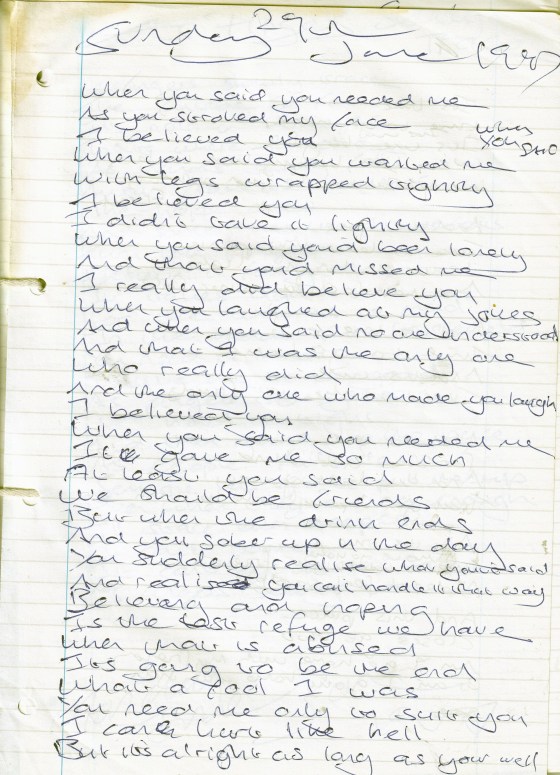 Sunday 29th June 1987
When you said you needed me
As you stroked my face
I believed you
When you said
When you said you wanted me
With legs wrapped tightly
I believed you
I didn't take it lightly
When you said you'd been lonely
And that you'd missed me
I really did believe you
When you laughed at my jokes
And when you said no one understood
And that I was the only one
Who really did
And the only one who made you laugh
I believed you
When you said you needed me
It gave me so much
At least you said
We should be friends
But when the drink ends
And you sober up in the day
You suddenly realise what you'd said
And realise you can't handle it that way
Believing and hoping
Is the last refuge we have
When that is abused
Its going to be the end
What a fool I was
You need me only to suit you
I can hurt like hell
But its alright as long as your well